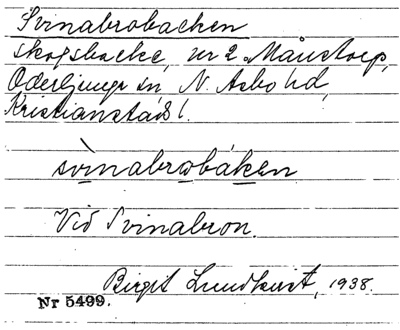 Svinabrobacken
skogsbacke, nr 2 Månstorp,
Oderljunga sn, N. Asbo hd,
Kristianstads l.
svinabrobáken
Vid Svinabron.
Birgit Lundkvist, 1938.
Nr 5499.